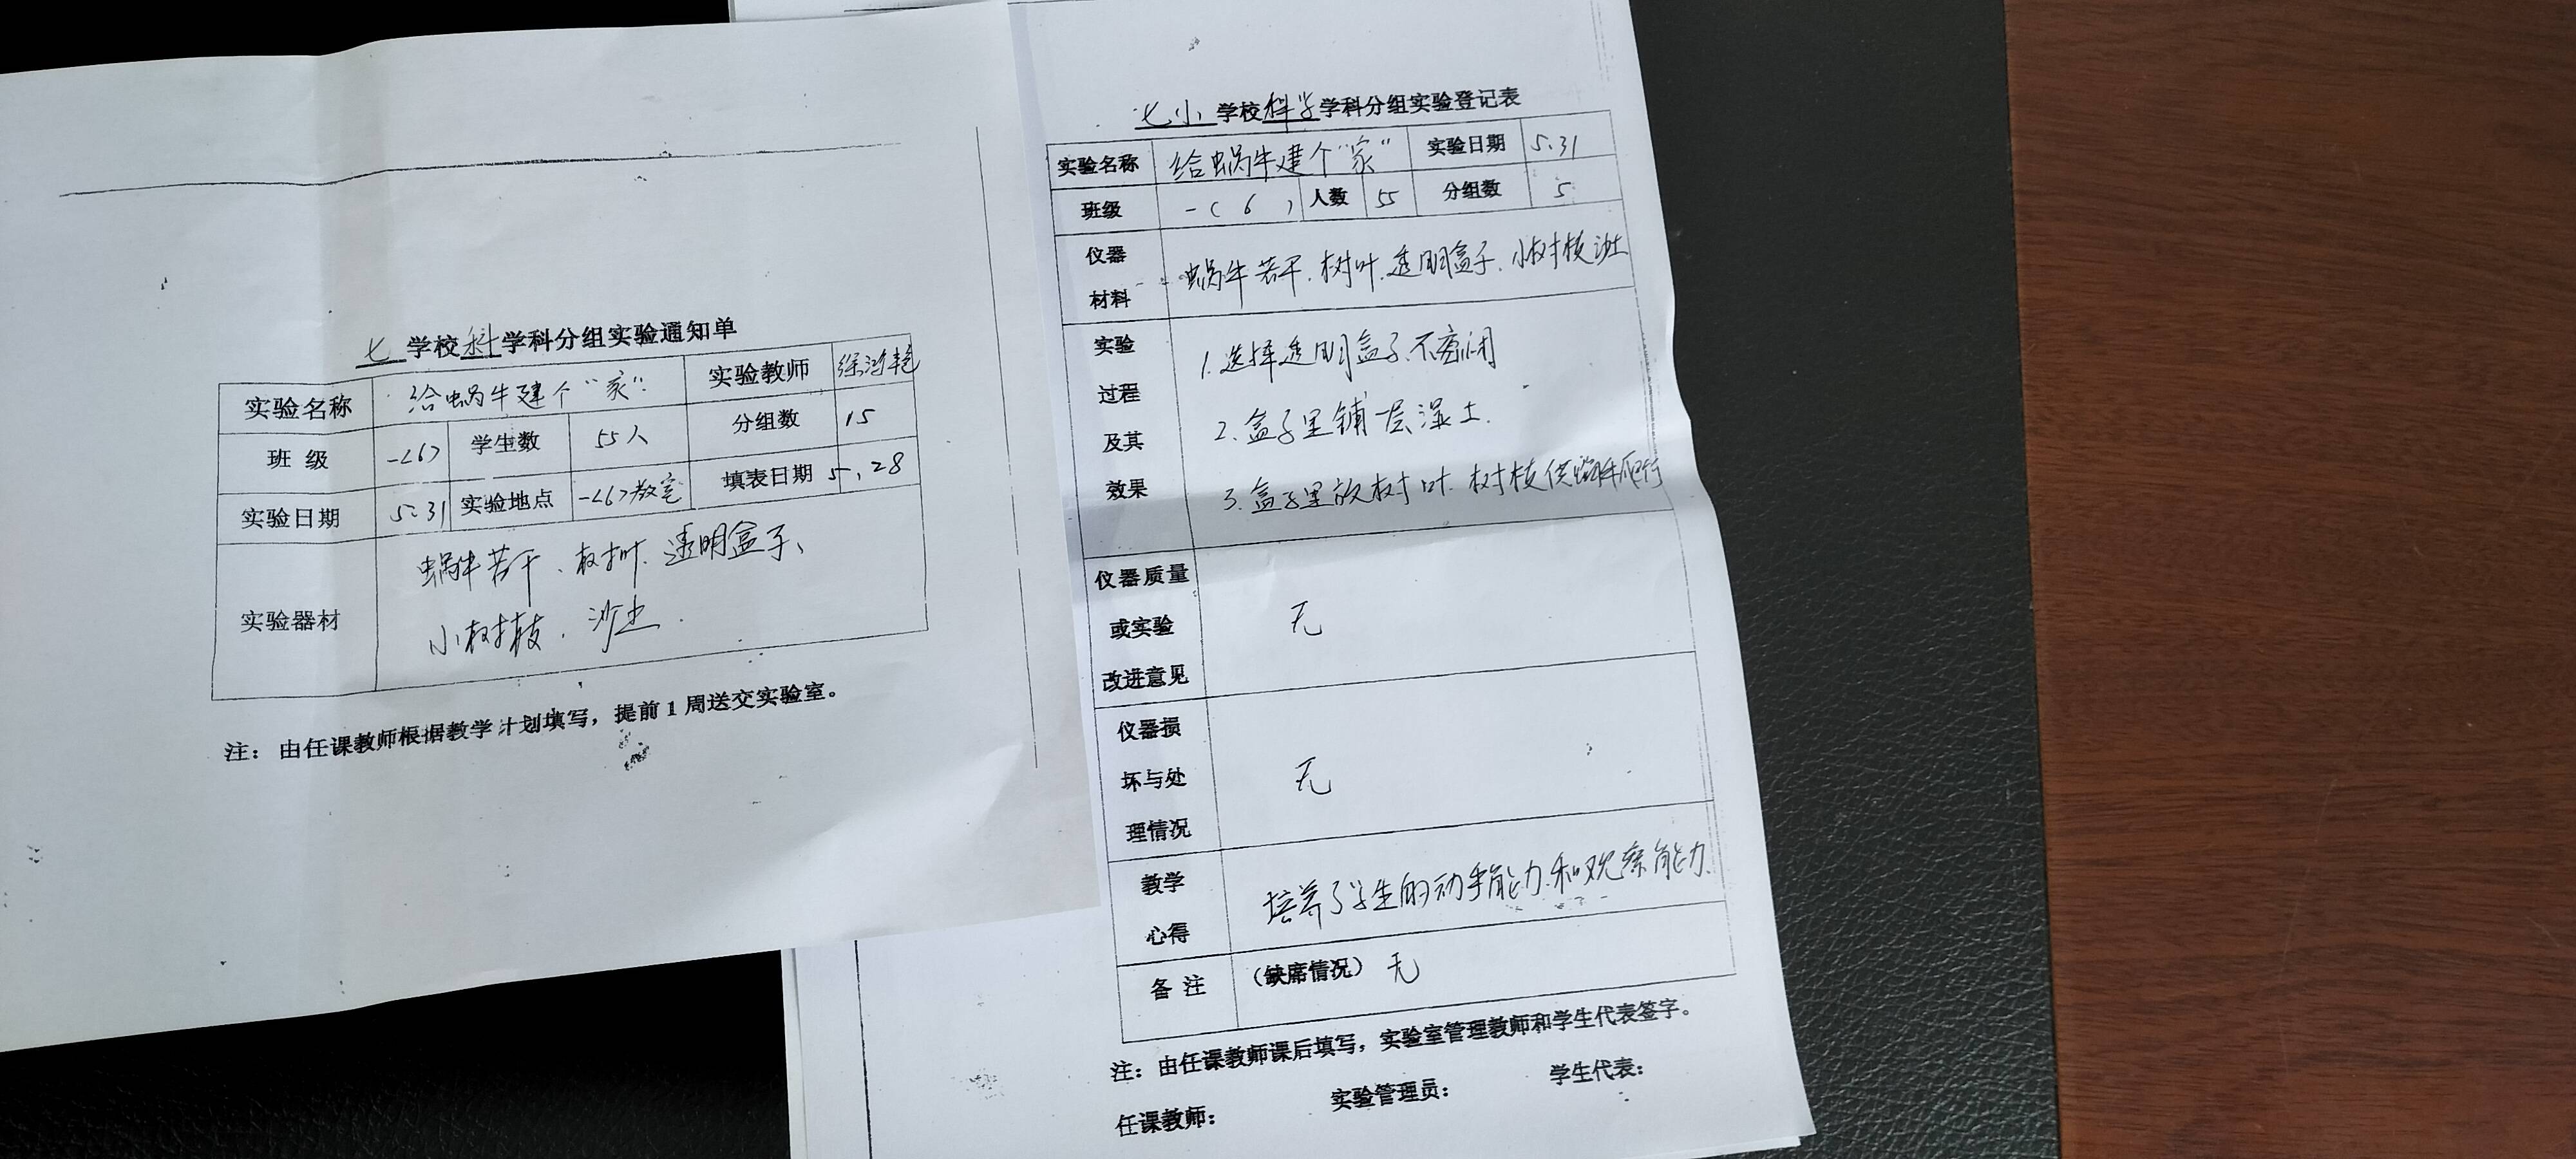 七 学校科学科分组实验通知单
实验名称 给蜗牛建个“家” 实验教师
班 级 一<6> 学生数 55人 分组数 15
实验日期 5.31 实验地点 一<6>教室 填表日期 5.28
实验器材 蜗牛若干、树叶、透明盒子、
小树枝、沙土.
注：由任课教师根据教学计划填写，提前1周送交实验室。
七小 学校科学学科分组实验登记表
实验名称 给蜗牛建个“家” 实验日期 5.31
班级 一（6） 人数 55 分组数 5
仪器材料 蜗牛若干.树叶.透明盒子.小树枝沙土
实验过程及其效果 1.选择透明盒子.不密闭
2.盒子里铺一层湿土.
3.盒子里放树叶.树枝供蜗牛爬行
仪器质量或实验改进意见 无
仪器损坏与处理情况 无
教学心得 培养了学生的动手能力.和观察能力.
备 注 （缺席情况） 无
注：由任课教师课后填写，实验室管理教师和学生代表签字。
任课教师： 实验管理员： 学生代表：